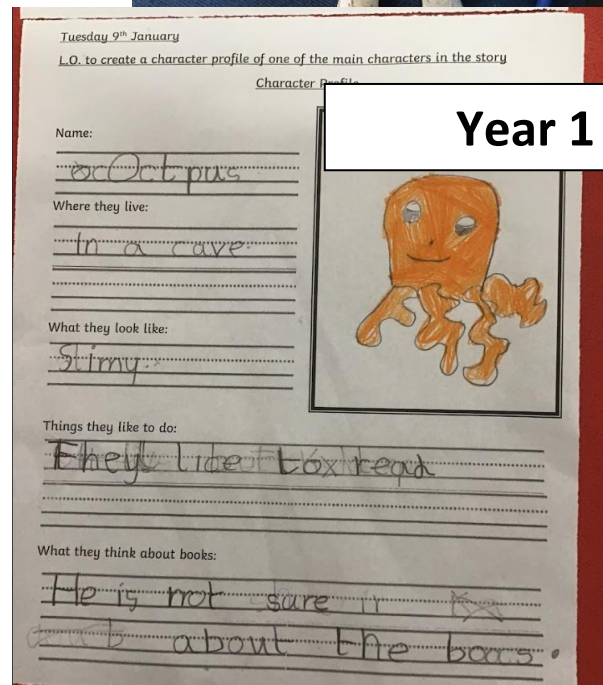 Tuesday 9th January
L.O. to create a character profile of one of the main characters in the story
Character Profile
Year 1
Name:
Octpus
Where they live:
In a cave.
What they look like:
Slimy.
Things they like to do:
They like to read
What they think about books:
He is not sure
about the boocs.